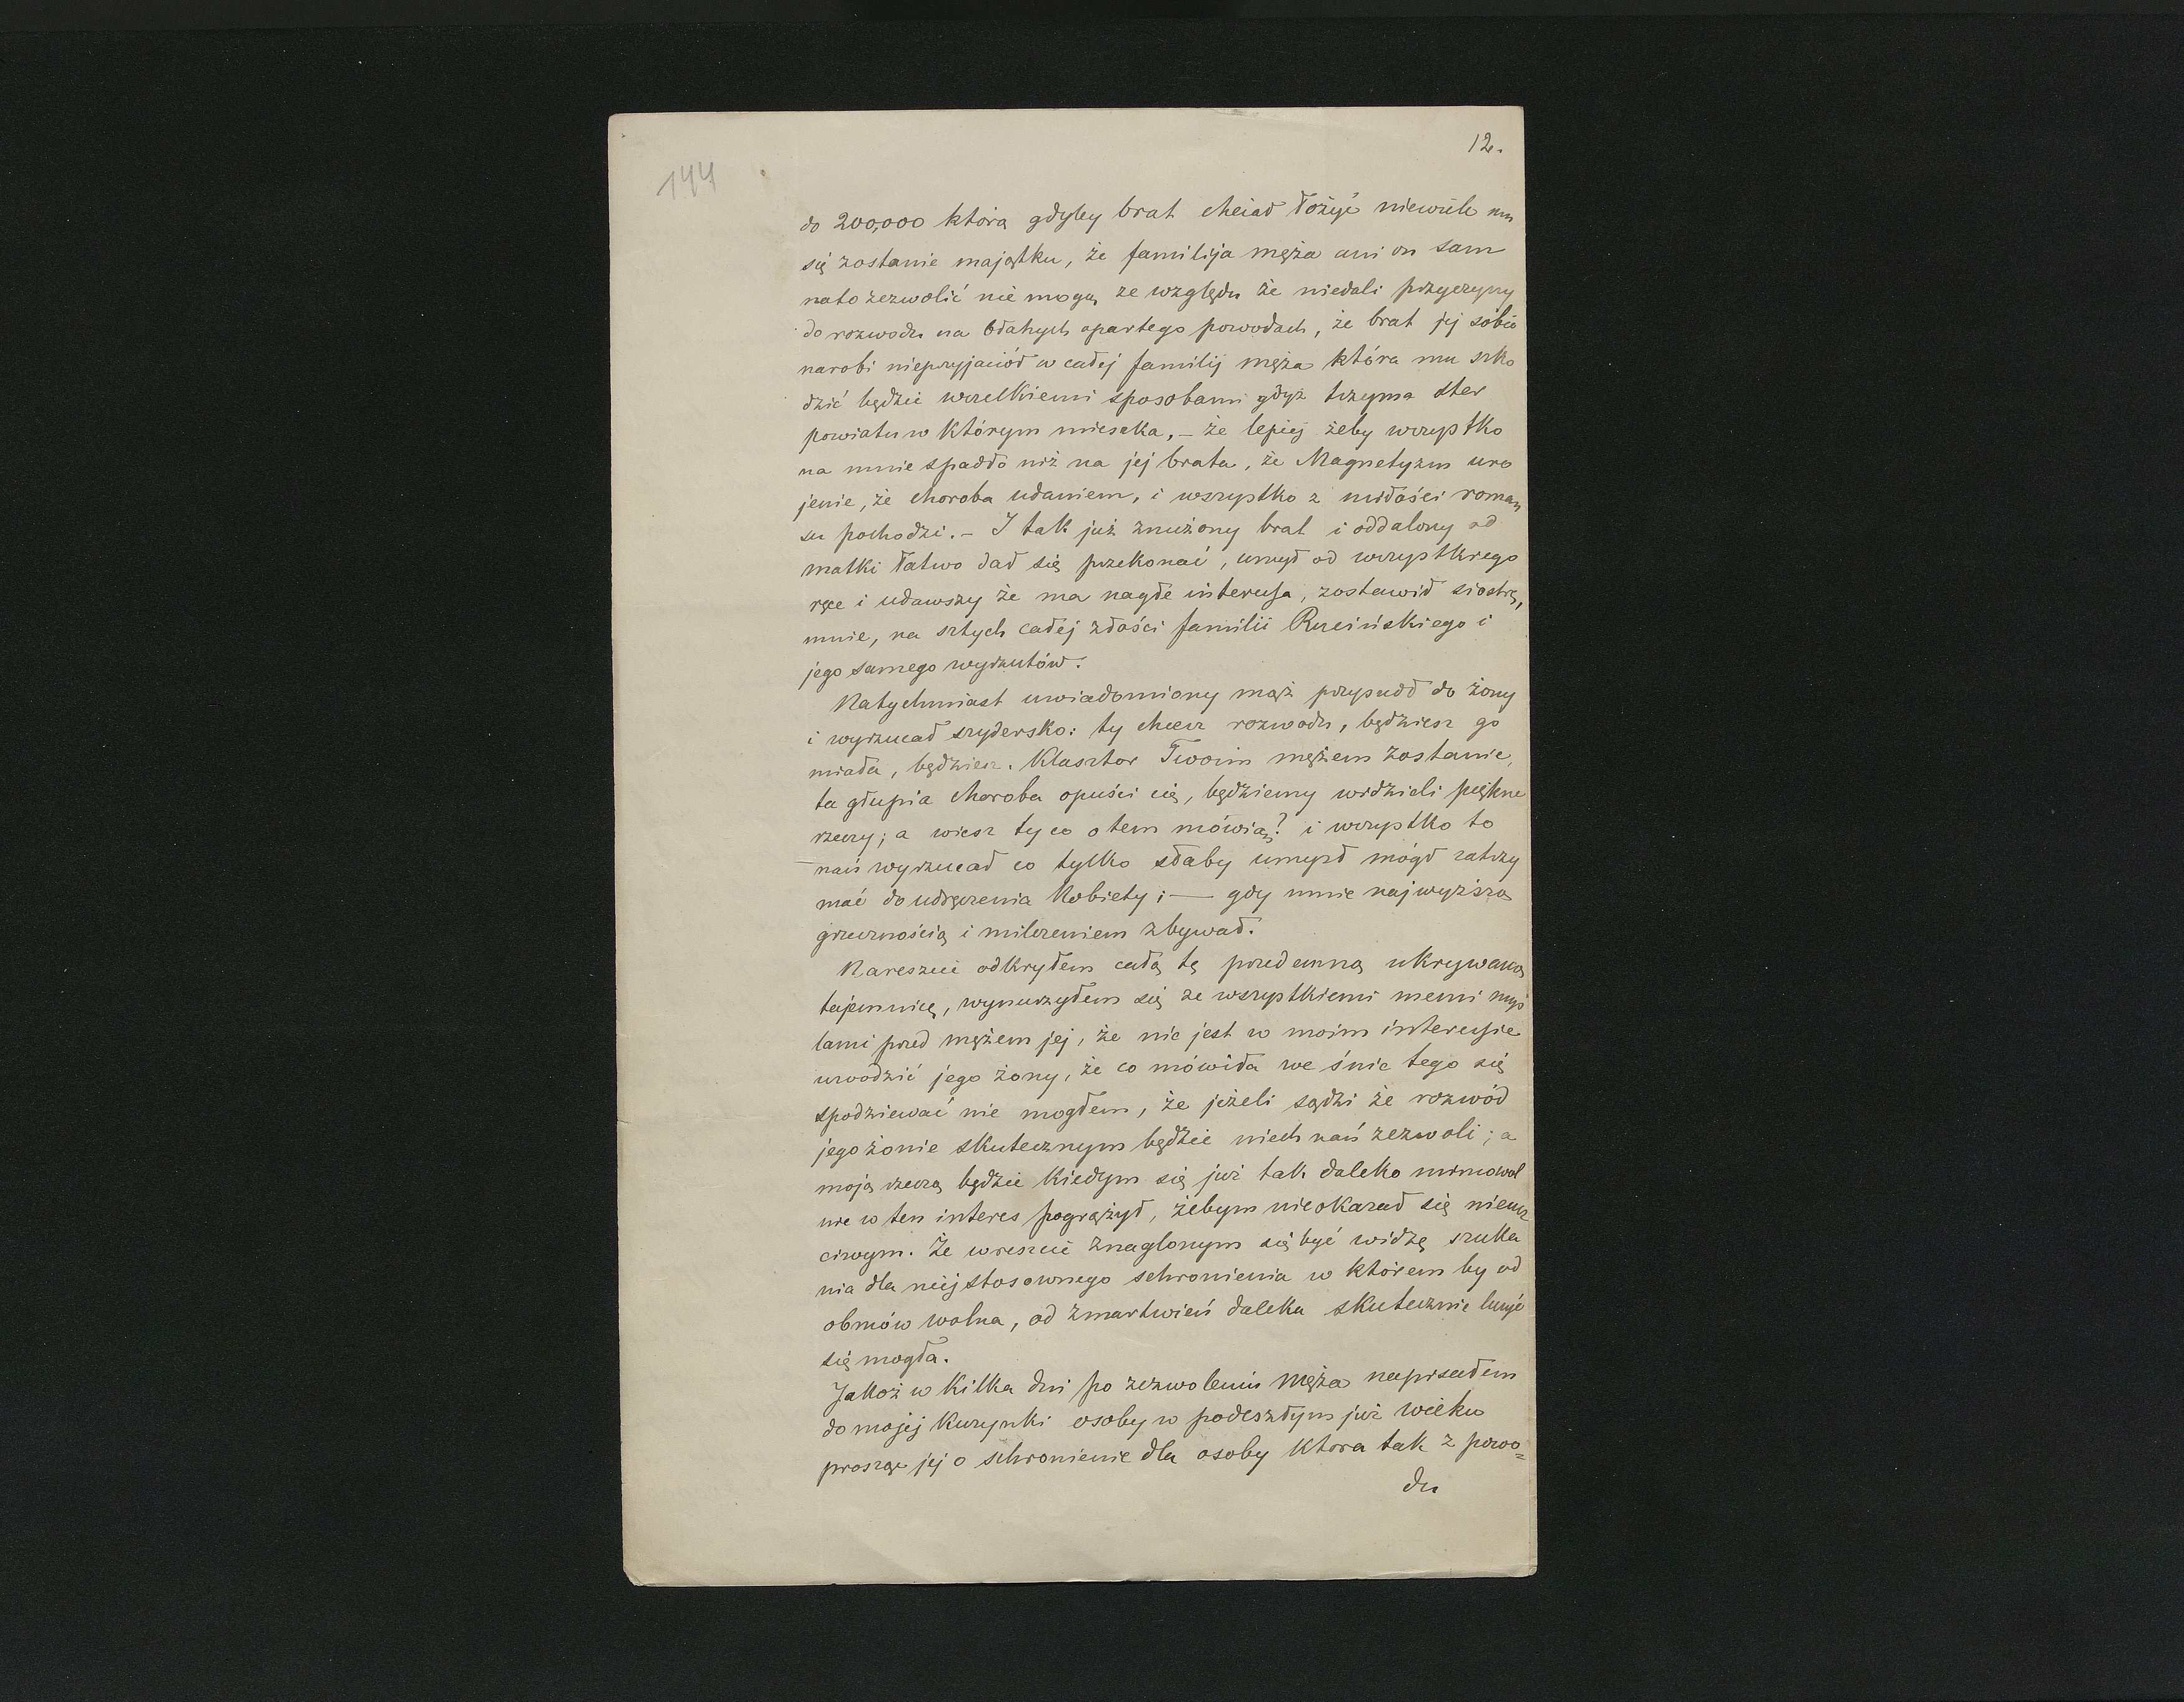 12.
144
do 200,000 którą gdyby brat chciał łożyć niewiele mu
się zostanie majątku, że familija męża ani on sam
nato zezwolić nie mogą ze względu że niedali przyczyny
do rozwodu na błahych opartego powodach, że brat jej sobie
narobi nieprzyjaciół w całej familij męża która mu szko
dzić będzie wszelkiemi sposobami gdyż trzyma ster
powiatu w którym mieszka, – że lepiej żeby wszystko
na mnie spadło niż na jej brata, że Magnetyzm uro
jenie, że choroba udaniem, i wszystko z miłości roman
su pochodzi. – I tak już znużony brat i oddalony od
matki łatwo dał się przekonać, umył od wszystkiego
ręce i udawszy że ma nagłe interesa, zostawił siostrę,
mnie, na sztych całej złości familii Rucińskiego i
jego samego wyrzutów.
Natychmiast uwiadomiony mąż przypadł do żony
i wyrzucał szydersko: ty chcesz rozwodu, będziesz go
miała, będziesz. Klasztor Twoim mężem zostanie,
ta głupia choroba opuści cię, będziemy widzieli piękne
rzeczy; a wiesz ty co o tem mówią? i wszystko to
nań wyrzucał co tylko słaby umysł mógł zatrzy
mać do udręczenia Kobiety; — gdy mnie najwyższą
grzecznością i milczeniem zbywał.
Nareszcie odkryłem całą tę przedemną ukrywaną
tajemnicę, wynurzyłem się ze wszystkiemi memi myś
lami przed mężem jej, że nie jest w moim interesie
uwodzić jego żony, że co mówiła we śnie tego się
spodziewać nie mogłem, że jeżeli sądzi że rozwód
jego żonie skutecznym będzie niech nań zezwoli; a
moją rzeczą będzie kiedym się już tak daleko mimowol
nie w ten interes pogrążył, żebym nieokazał się nieucz
ciwym. Że wreszcie znaglonym się być widzę szuka
nia dla niej stosownego schronienia w którem by od
obmów wolna, od zmartwień daleka skutecznie leczyć
się mogła.
Jakoż w kilka dni po zezwoleniu męża napisałem
do mojej Kuzynki osoby w podeszłym już wieku
prosząc jej o schronienie dla osoby która tak z powo=
du